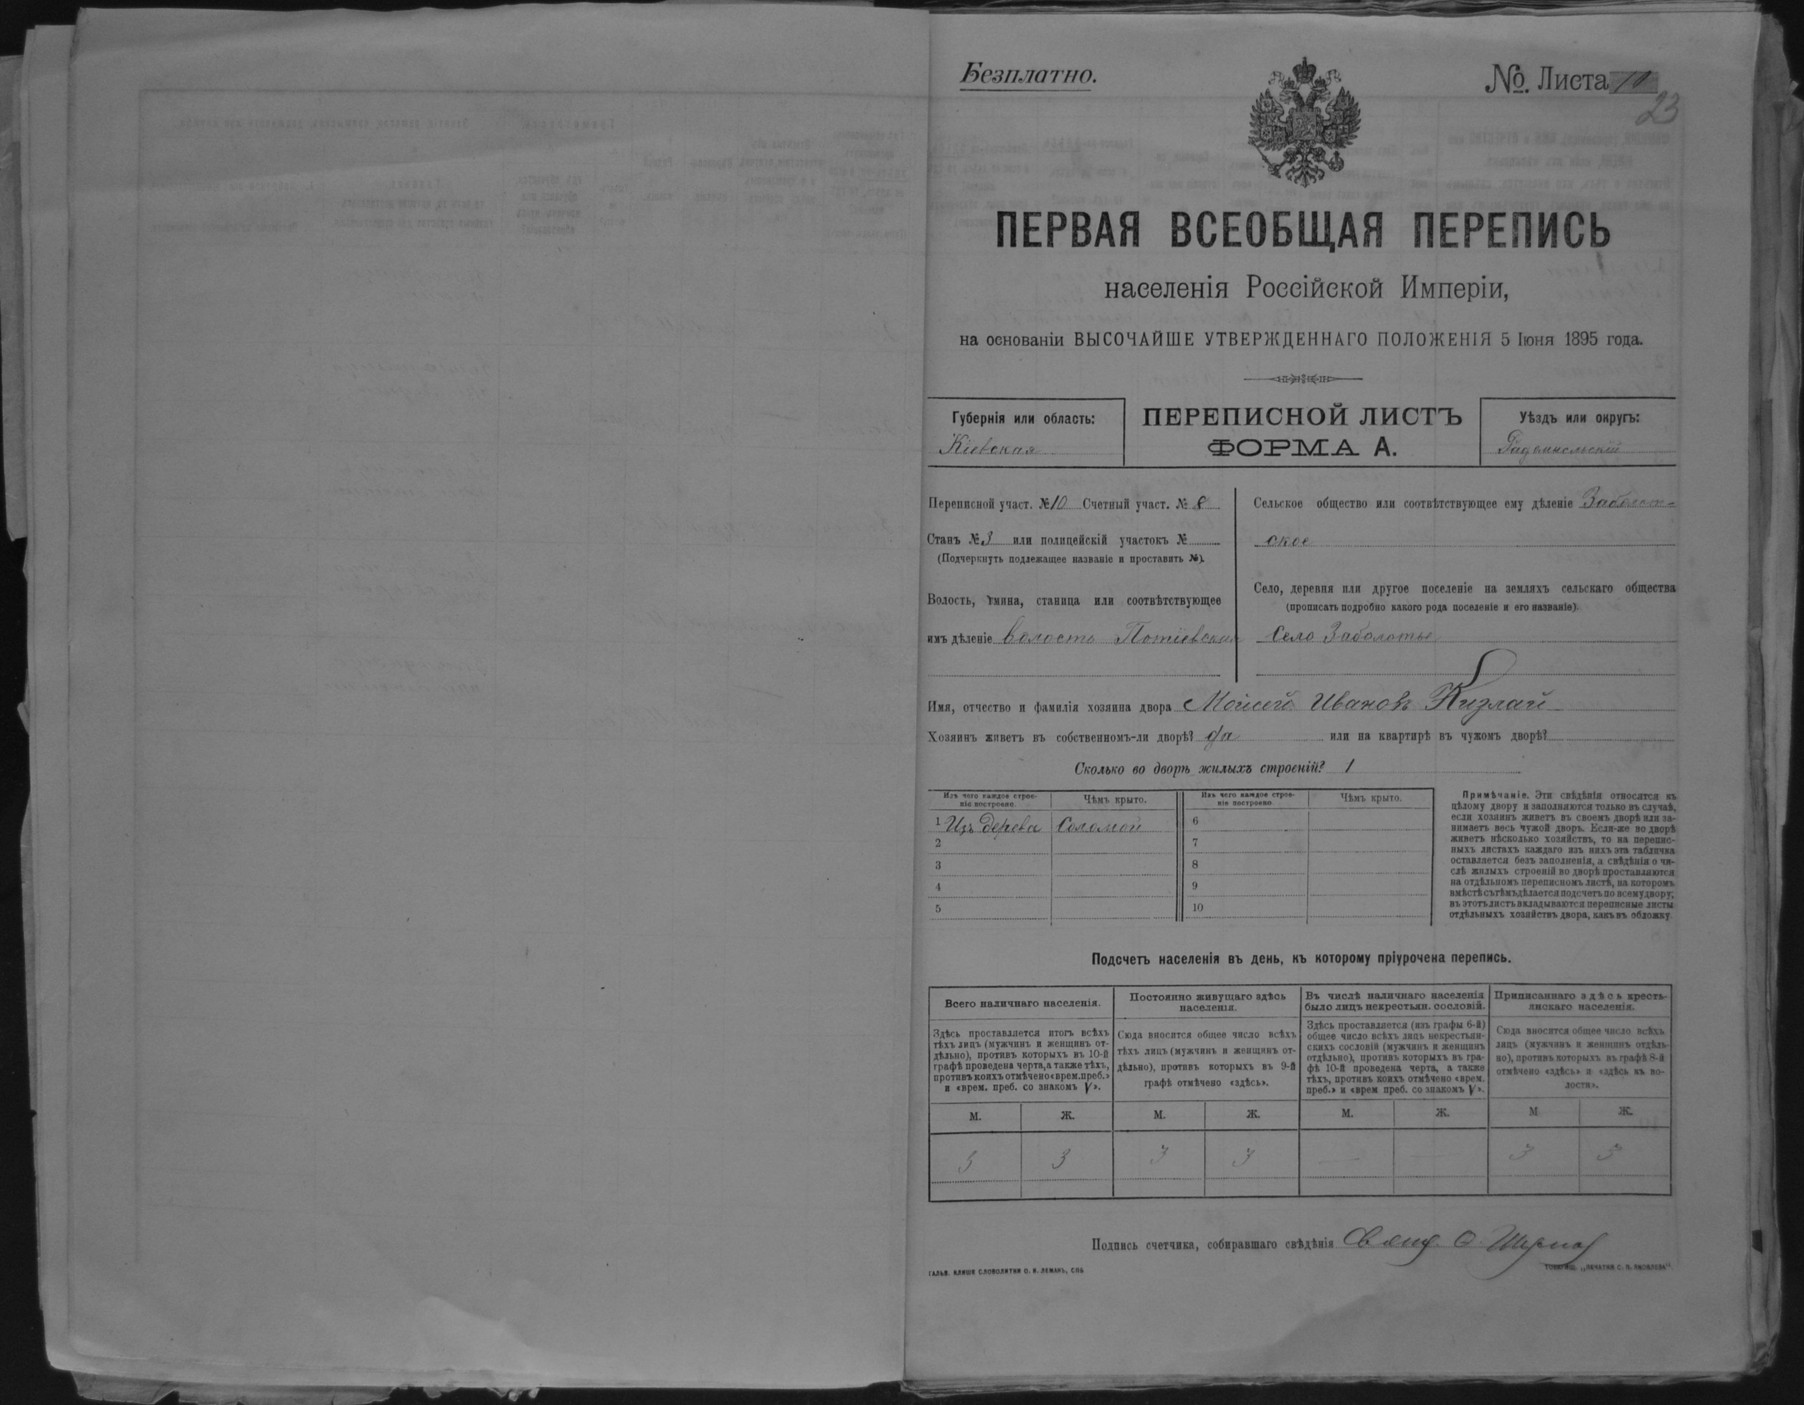 Безплатно.
№ Листа 10
23
ПЕРВАЯ ВСЕОБЩАЯ ПЕРЕПИСЬ
населенія Россійской Имперіи,
на основаніи ВЫСОЧАЙШЕ УТВЕРЖДЕННАГО ПОЛОЖЕНІЯ 5 Іюня 1895 года.
Губернія или область:
Кіевская
ПЕРЕПИСНОЙ ЛИСТЪ
ФОРМА А.
Уѣздъ или округъ:
Радомысльскій
Переписной участ. №10 Счетный участ. № 8
Станъ № 3 или полицейскій участокъ №
(Подчеркнуть подлежащее названіе и проставить №).
Волость, гмина, станица или соотвѣтствующее
имъ дѣленіе волость Потіевская
Сельское общество или соотвѣтствующее ему дѣленіе Заболот-
ское
Село, деревня или другое поселеніе на земляхъ сельскаго общества
(прописать подробно какого рода поселеніе и его названіе)
Село Заболотье
Имя, отчество и фамилія хозяина двора Моисей Иванов Кизлай
Хозяинъ живетъ въ собственномъ-ли дворѣ? да или на квартирѣ въ чужомъ дворѣ?
Сколько во дворѣ жилыхъ строеній? 1
Изъ чего каждое строе-
ніе построено.
Чѣмъ крыто.
Изъ чего каждое строе-
ніе построено
Чѣмъ крыто.
1 Изъ дерева Соломой 6
2 7
3 8
4 9
5 10
Примѣчаніе. Эти свѣдѣнія относятся къ
цѣлому двору и заполняются только въ случаѣ,
если хозяинъ живетъ въ своемъ дворѣ или за-
нимаетъ весь чужой дворъ. Если-же во дворѣ
живетъ нѣсколько хозяйствъ, то на перепис-
ныхъ листахъ каждаго изъ нихъ эта табличка
оставляется безъ заполненія, а свѣдѣнія о чи-
слѣ жилыхъ строеній во дворѣ проставляются
на отдѣльномъ переписномъ листѣ, на которомъ
вмѣстѣ съ тѣмъ дѣлается подсчетъ по всему двору;
въ этотъ листъ вкладываются переписные листы
отдѣльныхъ хозяйствъ двора, какъ въ обложку
Подсчетъ населенія въ день, къ которому пріурочена перепись.
Всего наличнаго населенія.
Здѣсь проставляется итогъ всѣхъ
тѣхъ лицъ (мужчинъ и женщинъ от-
дѣльно), противъ которыхъ въ 10-й
графѣ проведена черта, а также тѣхъ,
противъ коихъ отмѣчено «врем. преб.»
и «врем. преб. со знакомъ V».
Постоянно живущаго здѣсь
населенія.
Сюда вносится общее число всѣхъ
тѣхъ лицъ (мужчинъ и женщинъ от-
дѣльно), противъ которыхъ въ 9-й
графѣ отмѣчено «здѣсь».
Въ числѣ наличнаго населенія
было лицъ некрестьян. сословій.
Здѣсь проставляется (изъ графы 6-й)
общее число всѣхъ лицъ некрестьян-
скихъ сословій (мужчинъ и женщинъ
отдѣльно), противъ которыхъ въ гра-
фѣ 10-й проведена черта, а также
тѣхъ, противъ коихъ отмѣчено «врем.
преб.» и «врем преб. со знакомъ V».
Приписаннаго здѣсь кресть-
янскаго населенія.
Сюда вносится общее число всѣхъ
лицъ (мужчинъ и женщинъ отдѣль-
но), противъ которыхъ въ графѣ 8-й
отмѣчено «здѣсь» и «здѣсь въ во-
лости».
М. Ж. М. Ж. М. Ж. М Ж.
3 3 3 3 — — 3 3
Подпись счетчика, собиравшаго свѣдѣнія
ГАЛЬВ. КЛИШЕ СЛОВОЛИТНИ О. И. ЛЕМАНЪ, СПБ.
ТОВАРИЩ. „ПЕЧАТНЯ С. П. ЯКОВЛЕВА“.